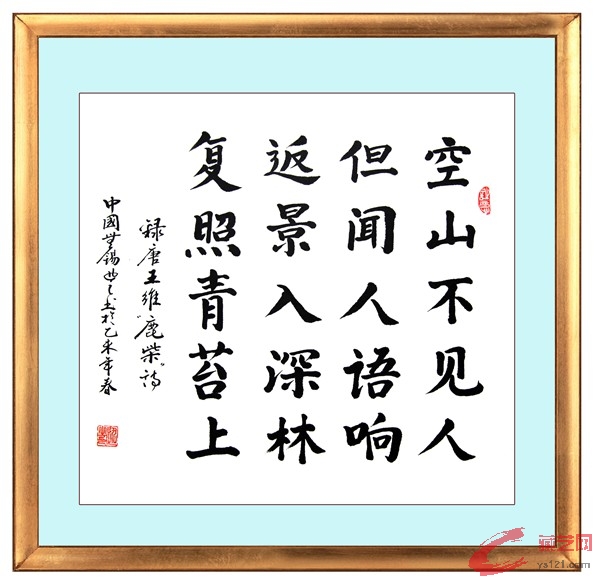 空山不见人
但闻人语响
返景入深林
复照青苔上
录唐王维鹿柴诗
中國無錫 书於乙未年春
藏艺网
ys121.com